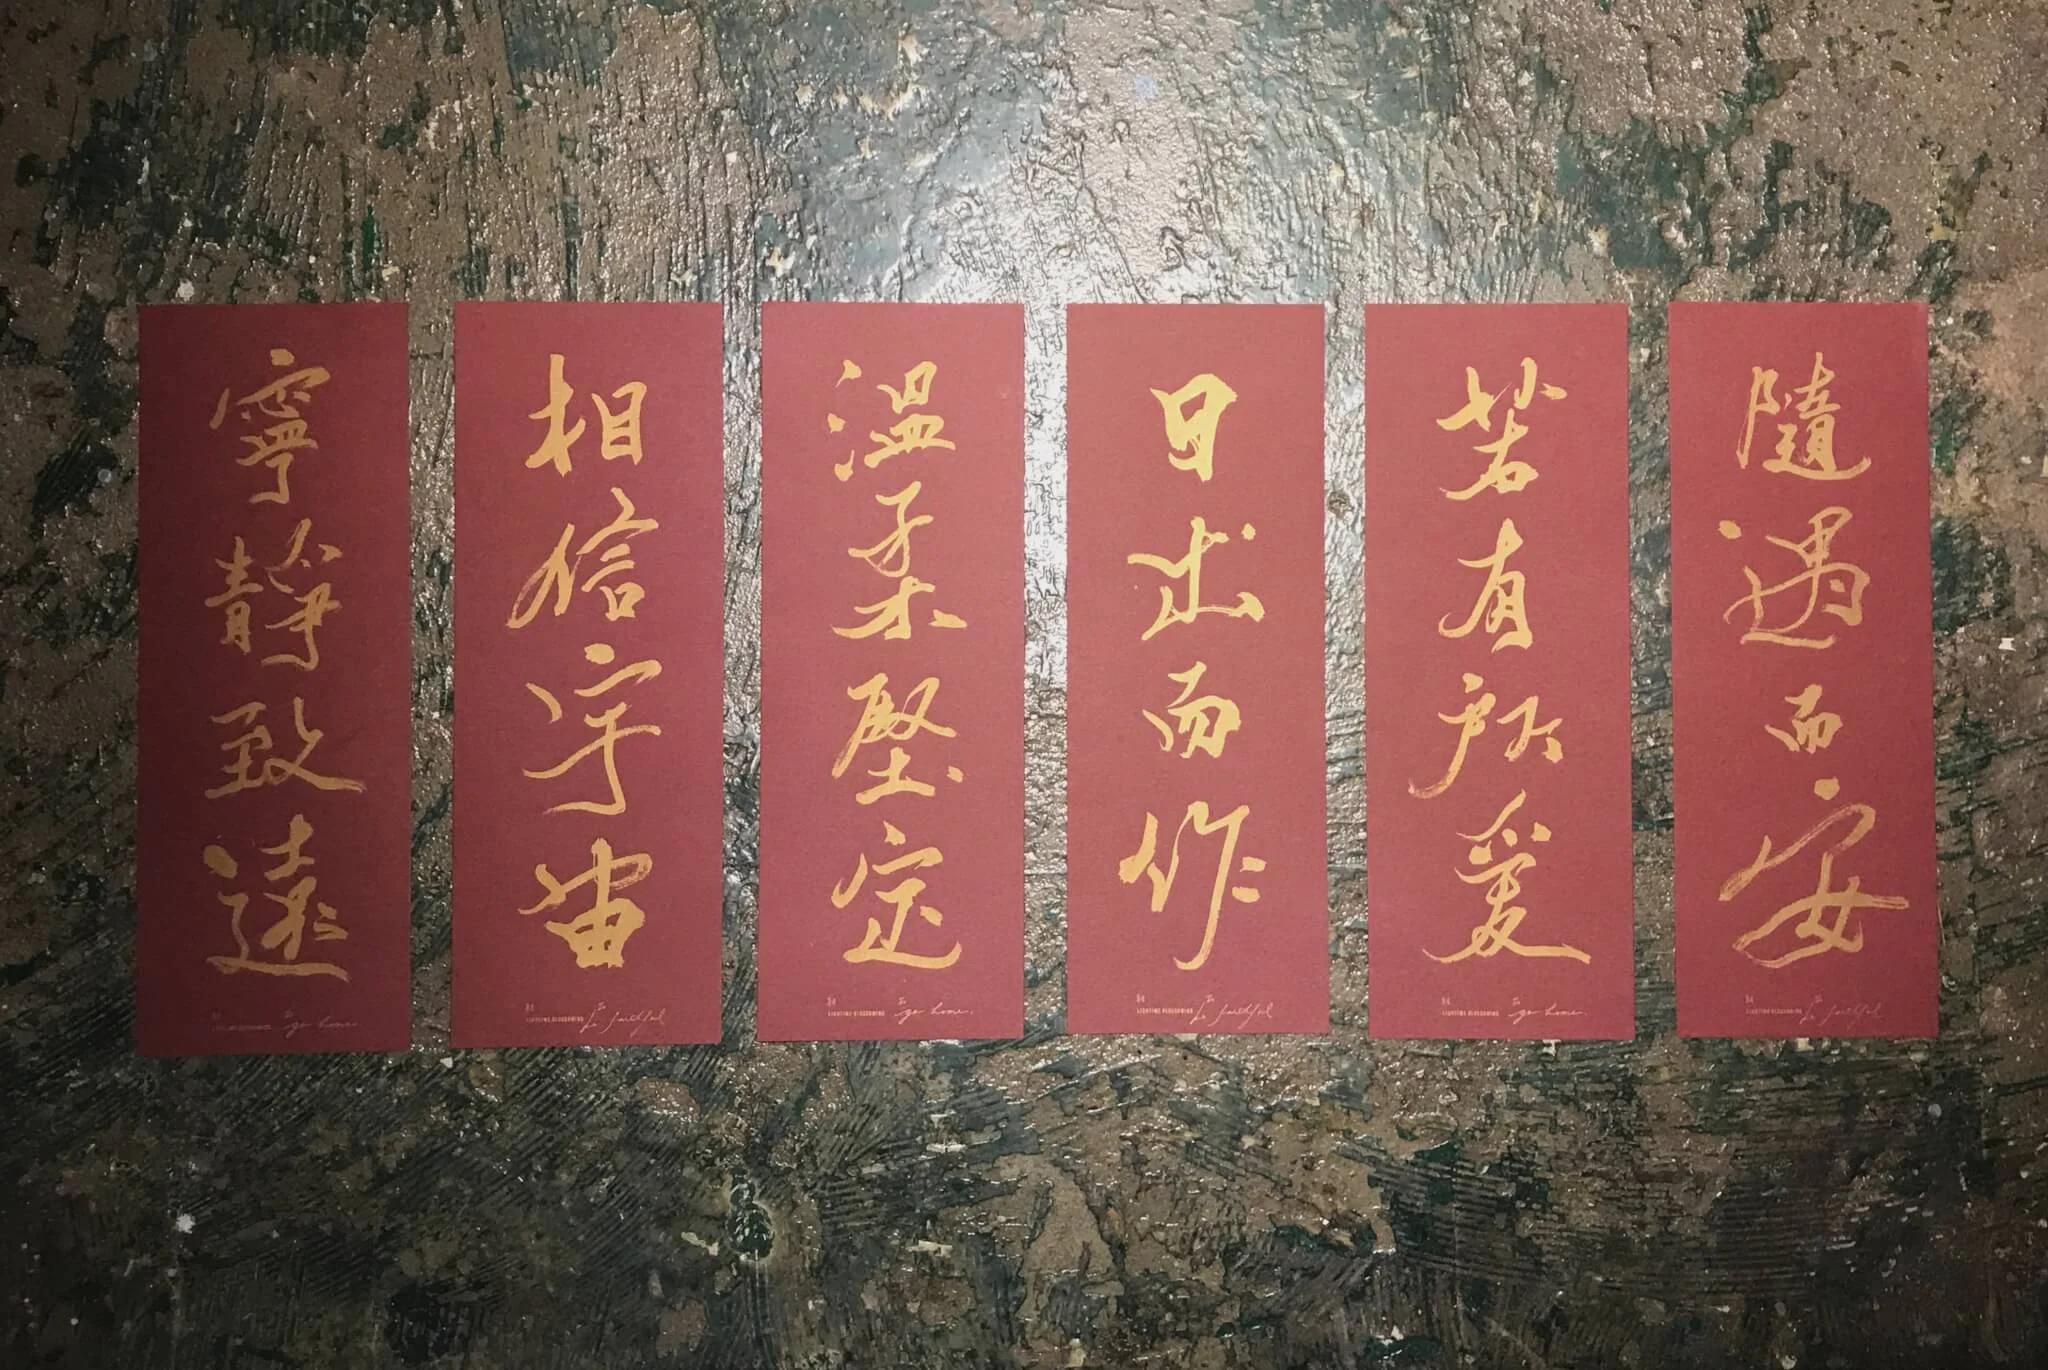 寧靜致遠
to go home.
相信宇宙
LIGHTING BLOSSOMING
to be faithful
溫柔堅定
LIGHTING BLOSSOMING
to go home.
日出而作
LIGHTING BLOSSOMING
to be faithful
若有所愛
LIGHTING BLOSSOMING
to go home.
隨遇而安
LIGHTING BLOSSOMING
to be faithful